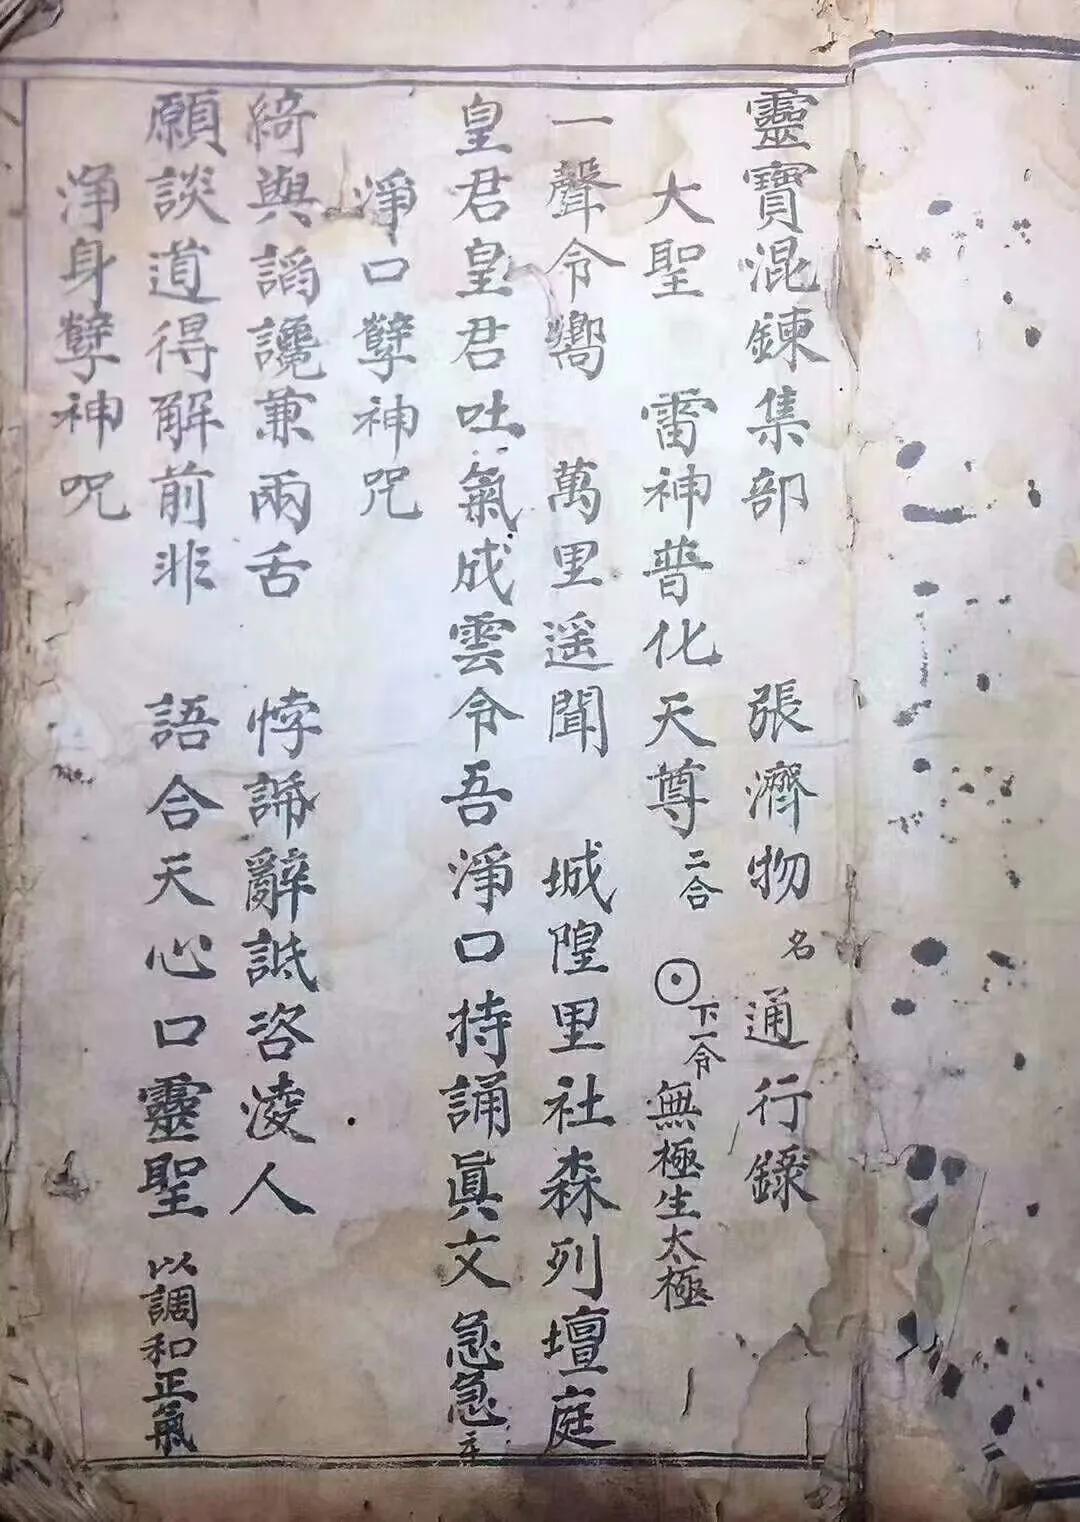 靈寶混鍊集部　張濟物名通行錄
大聖　雷神普化天尊二合　下一令　無極生太極
一聲令嚮　萬里遥聞　城隍里社森列壇庭
皇君皇君吐氣成雲令吾淨口持誦眞文急急
淨口孽神咒
綺與謟讒兼兩舌　悖諦辭詆咨凌人
願談道得解前非　語合天心口靈聖以調和正氣
淨身孽神呪